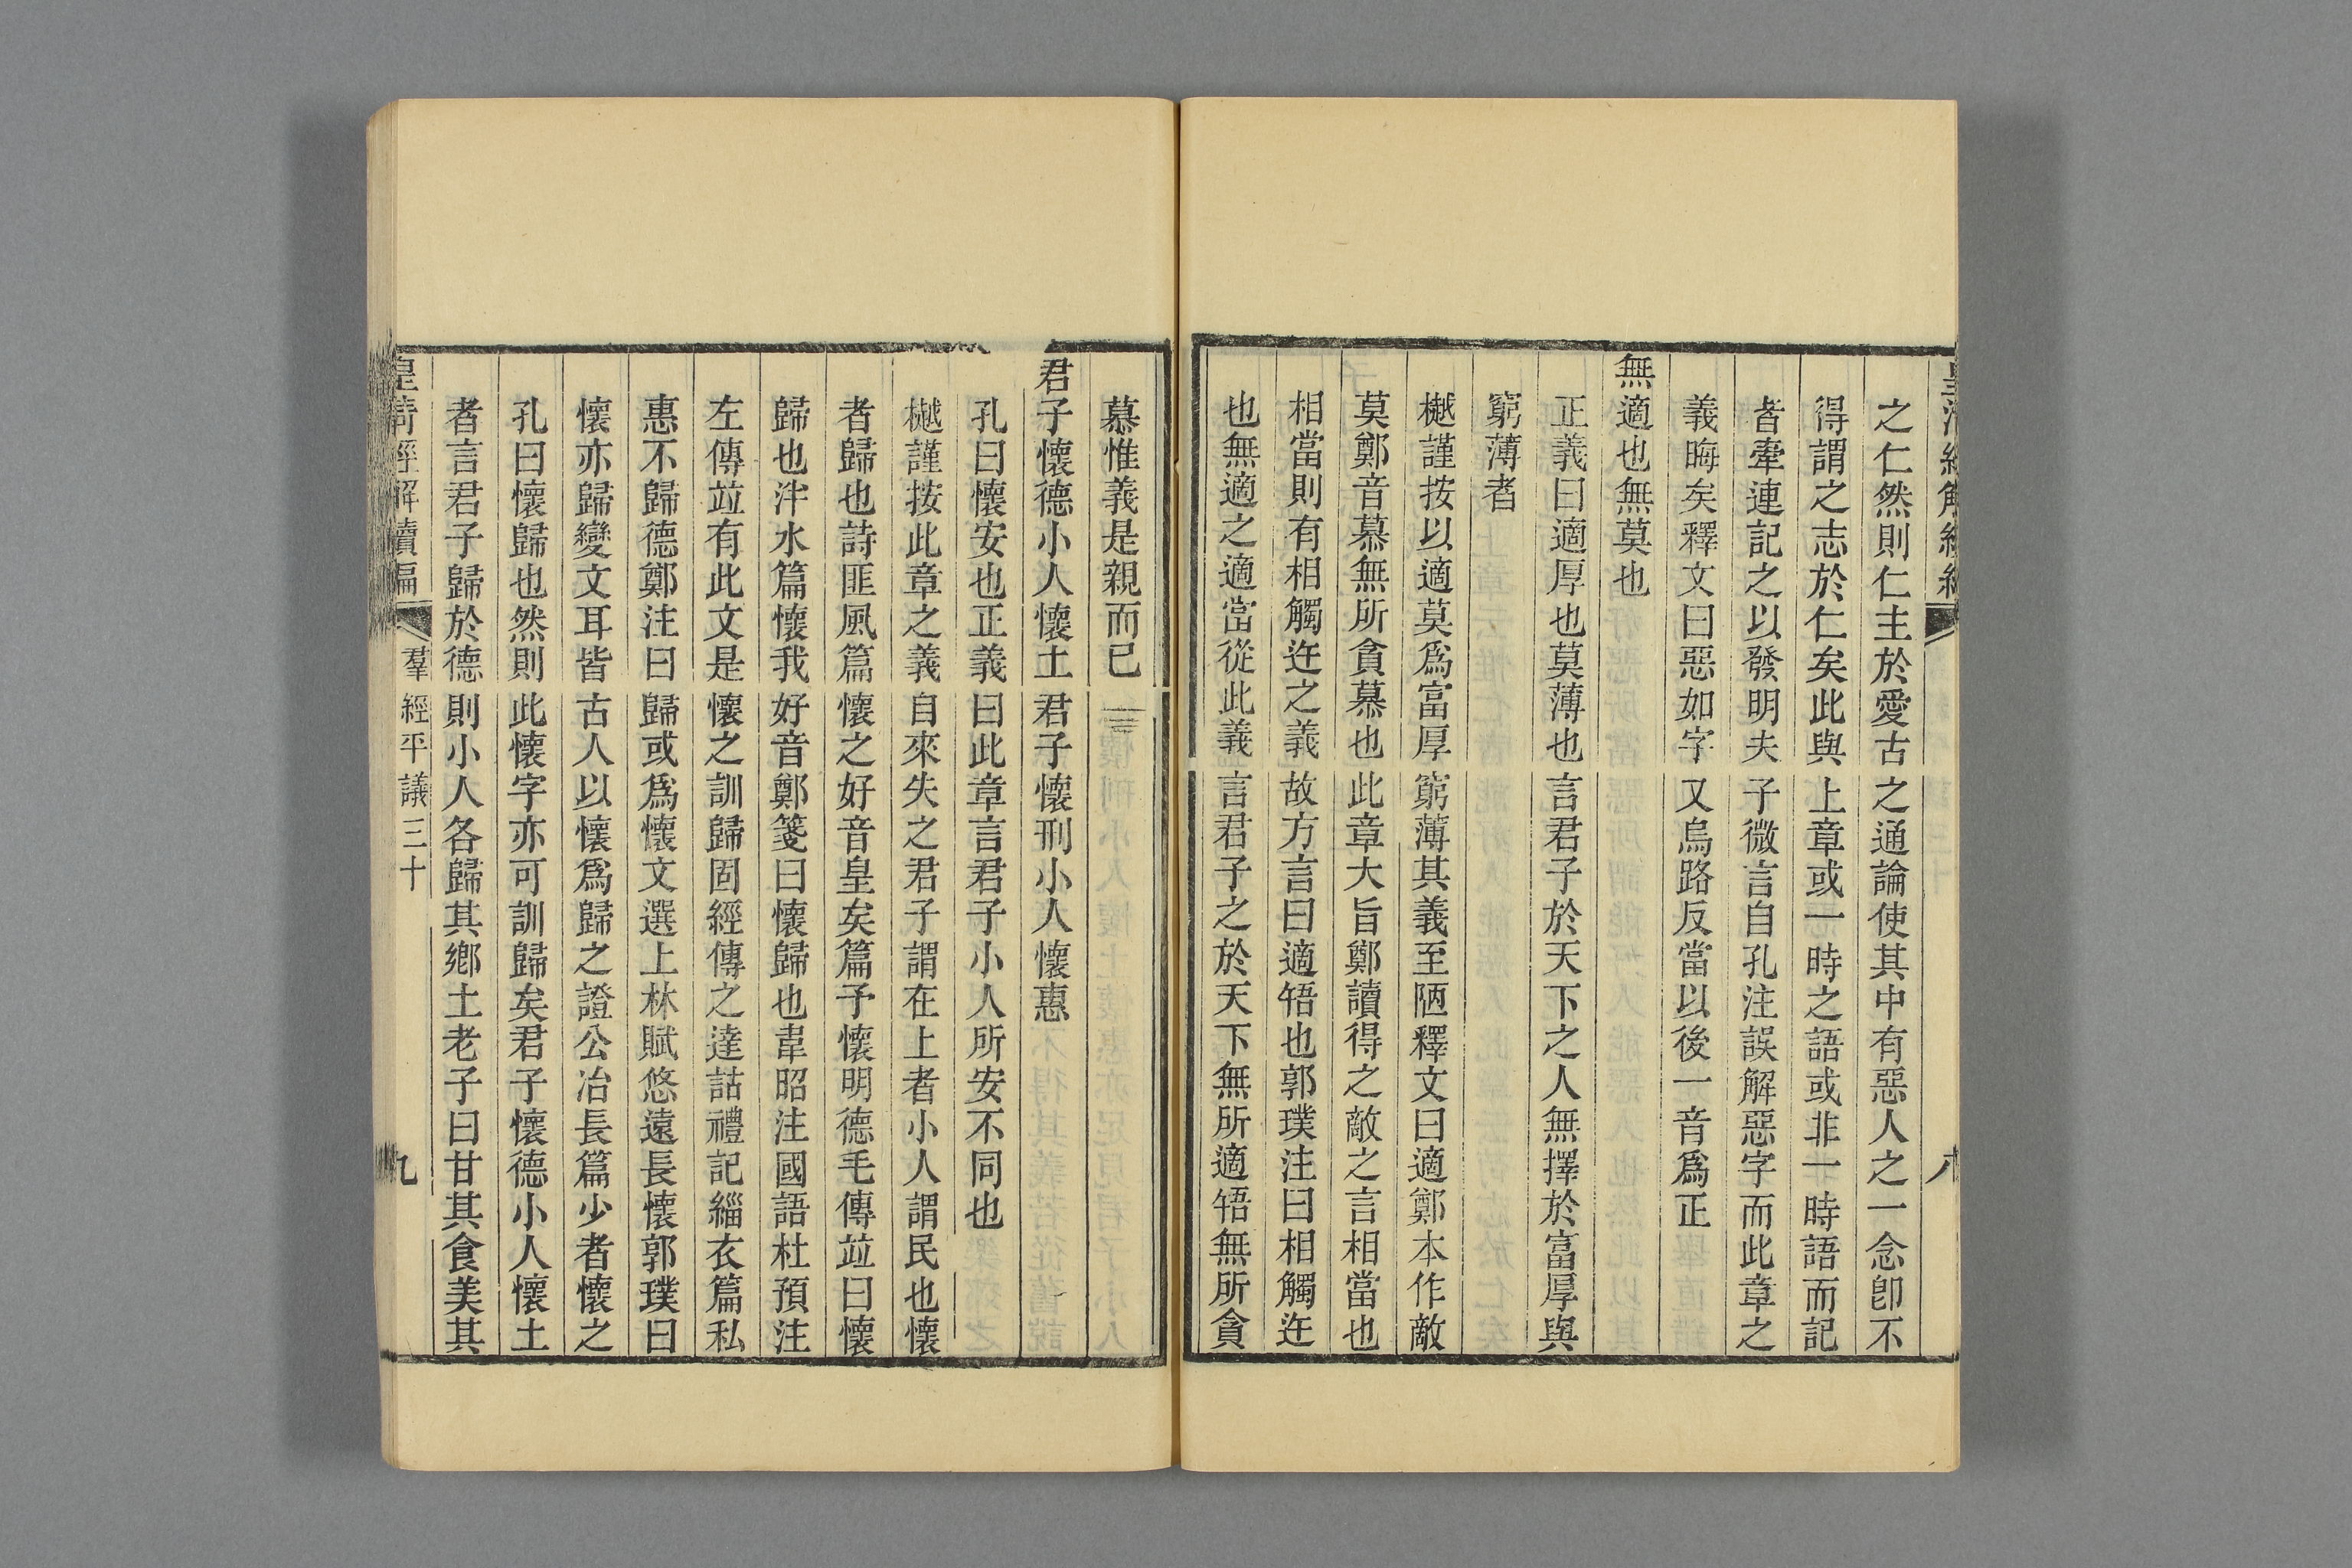 之仁然則仁主於愛古之通論使其中有惡人之一念卽不
得謂之志於仁矣此與上章或一時之語或非一時語而記
者牽連記之以發明夫子微言自孔注誤解惡字而此章之
義晦矣釋文曰惡如字又烏路反當以後一音爲正
無適也無莫也
正義曰適厚也莫薄也言君子於天下之人無擇於富厚與
窮薄者
樾謹按以適莫爲富厚窮薄其義至陋釋文曰適鄭本作敵
莫鄭音慕無所貪慕也此章大旨鄭讀得之敵之言相當也
相當則有相觸迕之義故方言曰適牾也郭璞注曰相觸迕
也無適之適當從此義言君子之於天下無所適牾無所貪
慕惟義是親而已
君子懷德小人懷土君子懷刑小人懷惠
孔曰懷安也正義曰此章言君子小人所安不同也
樾謹按此章之義自來失之君子謂在上者小人謂民也懷
者歸也詩匪風篇懷之好音皇矣篇予懷明德毛傳竝曰懷
歸也泮水篇懷我好音鄭箋曰懷歸也韋昭注國語杜預注
左傳竝有此文是懷之訓歸固經傳之達詁禮記緇衣篇私
惠不歸德鄭注曰歸或爲懷文選上林賦悠遠長懷郭璞曰
懷亦歸變文耳皆古人以懷爲歸之證公冶長篇少者懷之
孔曰懷歸也然則此懷字亦可訓歸矣君子懷德小人懷土
者言君子歸於德則小人各歸其鄉土老子曰甘其食美其
皇清經解續編 羣經平議三十 九